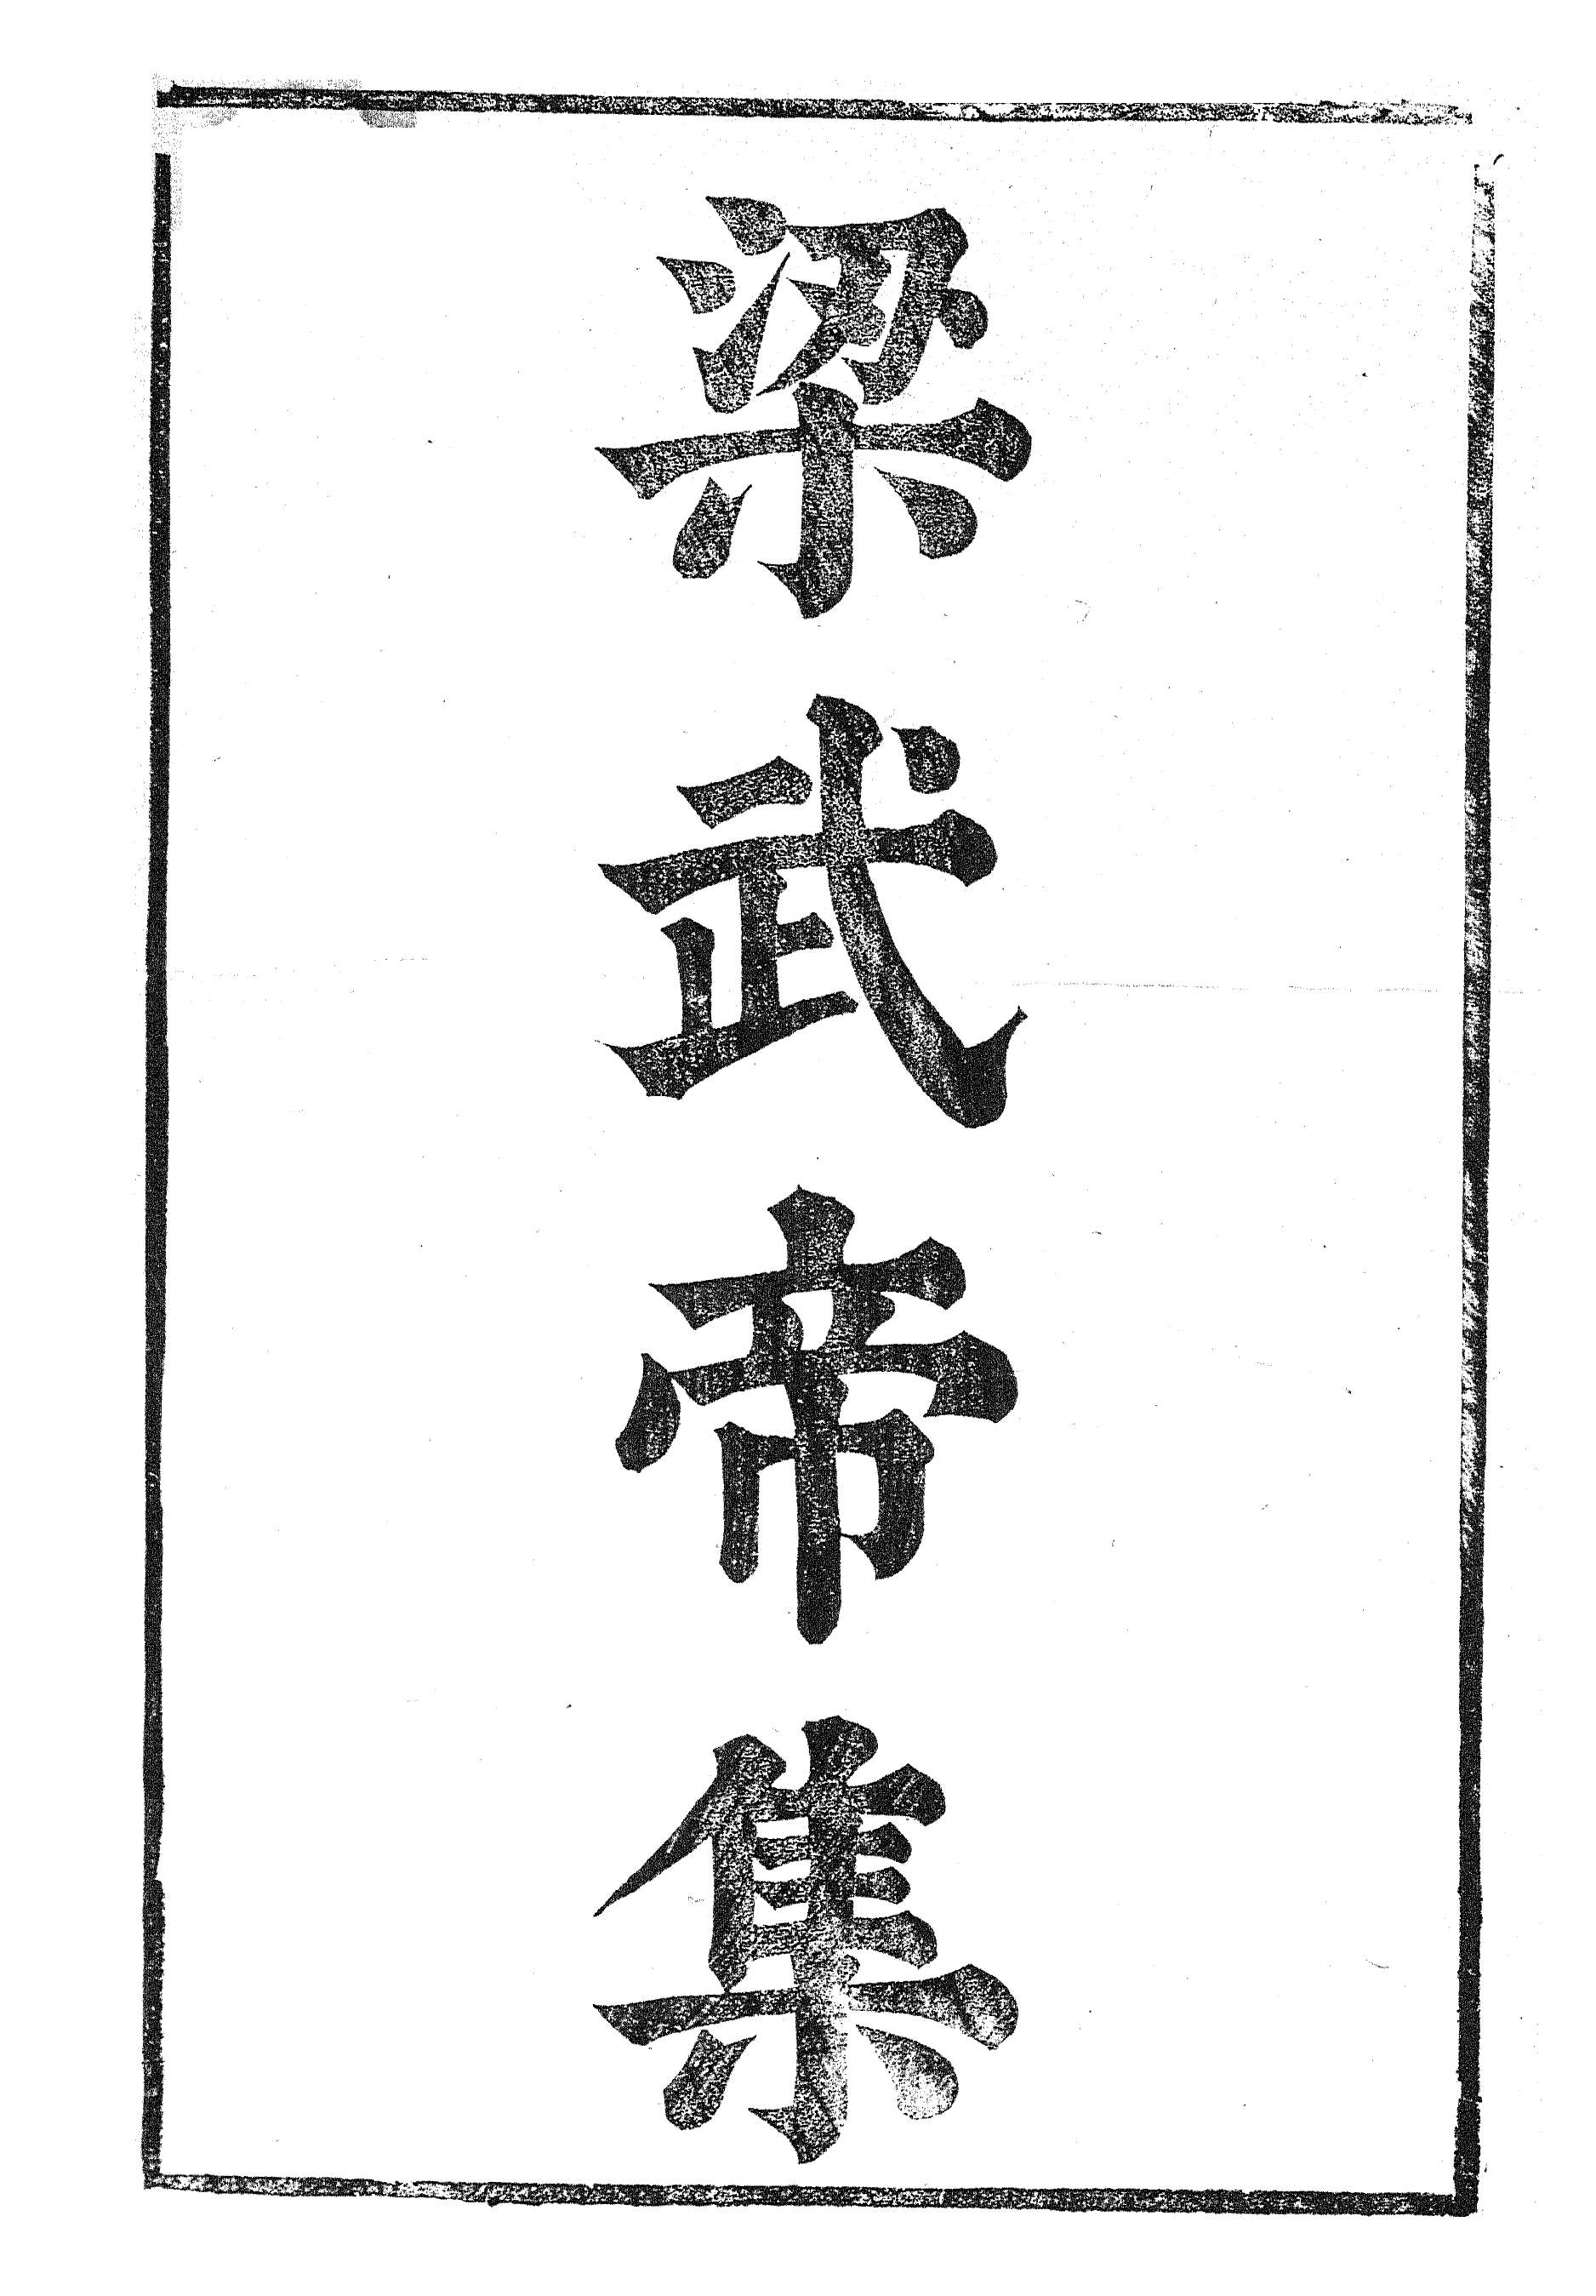 梁武帝集